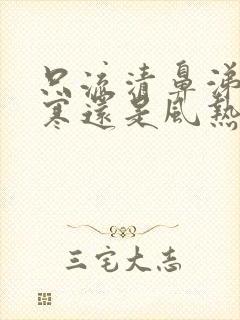 只流清鼻涕
寒還是風熱
三宅大志